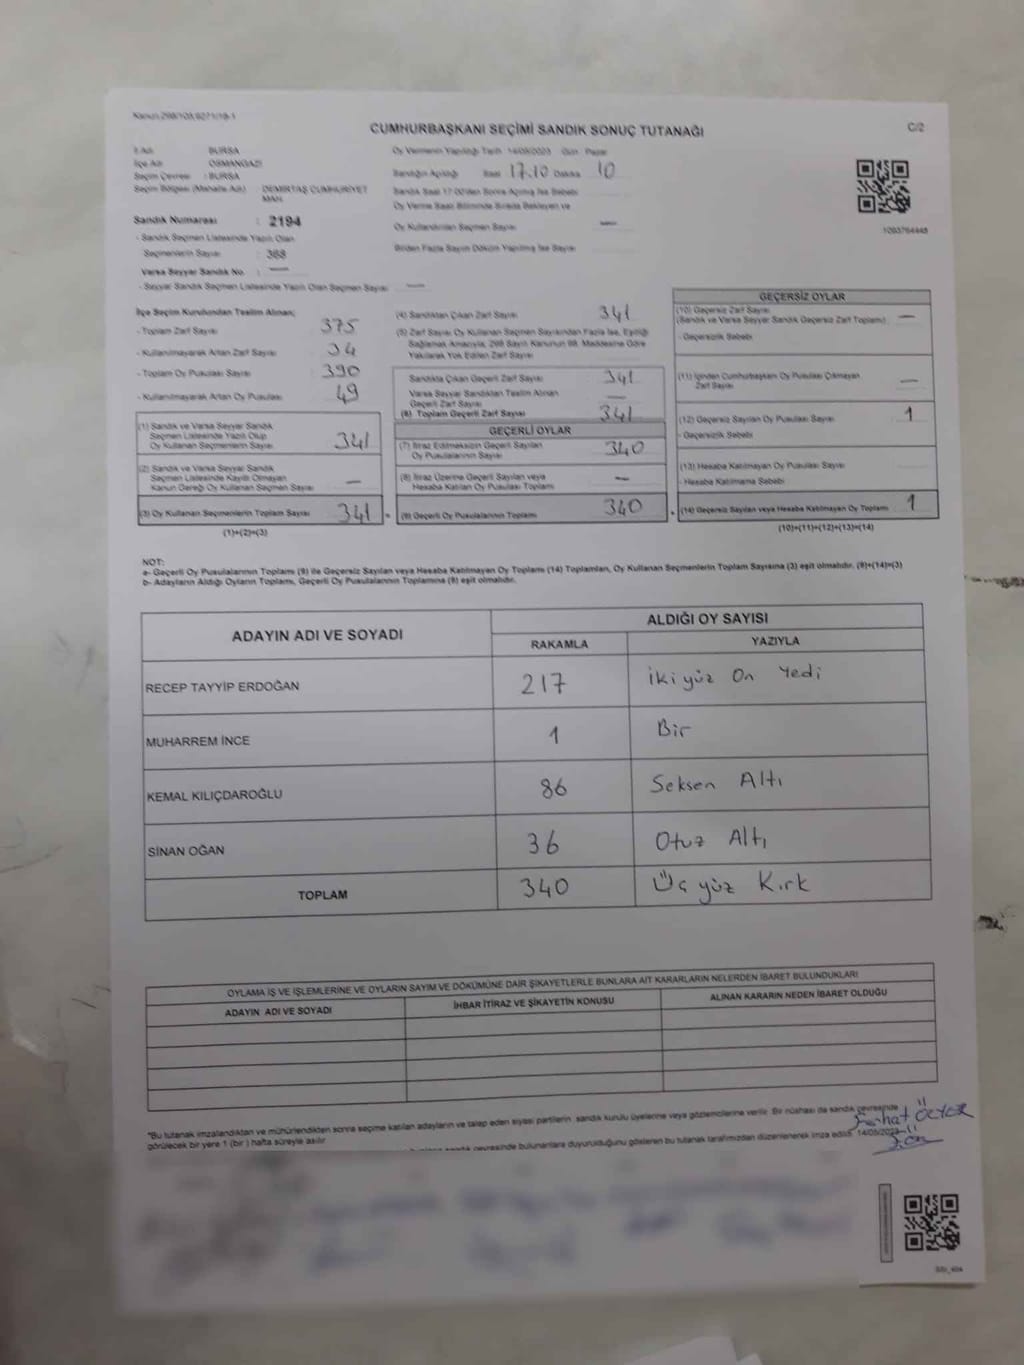 Kanun 298/105,6271/19-1
CUMHURBAŞKANI SEÇİMİ SANDIK SONUÇ TUTANAĞI
C/2
İl Adı BURSA
İlçe Adı OSMANGAZİ
Seçim Çevresi : BURSA
Seçim Bölgesi (Mahalle Adı) : DEMİRTAŞ CUMHURİYET MAH.
Sandık Numarası : 2194
- Sandık Seçmen Listesinde Yazılı Olan
Seçmenlerin Sayısı : 368
Varsa Seyyar Sandık No. : —
- Seyyar Sandık Seçmen Listesinde Yazılı Olan Seçmen Sayısı —
Oy Vermenin Yapıldığı Tarih 14/05/2023 Gün : Pazar
Sandığın Açıldığı Saat 17.10 Dakika 10
Sandık Saat 17:00'den Sonra Açılmış İse Sebebi
Oy Verme Saati Bitiminde Sırada Bekleyen ve
Oy Kullandırılan Seçmen Sayısı —
Birden Fazla Sayım Döküm Yapılmış İse Sayısı
1093764448
İlçe Seçim Kurulundan Teslim Alınan;
- Toplam Zarf Sayısı 375
- Kullanılmayarak Artan Zarf Sayısı 34
- Toplam Oy Pusulası Sayısı 390
- Kullanılmayarak Artan Oy Pusulası 49
(1) Sandık ve Varsa Seyyar Sandık
Seçmen Listesinde Yazılı Olup
Oy Kullanan Seçmenlerin Sayısı 341
(2) Sandık ve Varsa Seyyar Sandık
Seçmen Listesinde Kayıtlı Olmayan
Kanun Gereği Oy Kullanan Seçmen Sayısı —
(3) Oy Kullanan Seçmenlerin Toplam Sayısı 341
(1)+(2)=(3)
(4) Sandıktan Çıkan Zarf Sayısı 341
(5) Zarf Sayısı Oy Kullanan Seçmen Sayısından Fazla İse, Eşitliği
Sağlamak Amacıyla, 298 Sayılı Kanunun 98. Maddesine Göre
Yakılarak Yok Edilen Zarf Sayısı
Sandıkta Çıkan Geçerli Zarf Sayısı 341
Varsa Seyyar Sandıktan Teslim Alınan
Geçerli Zarf Sayısı —
(6) Toplam Geçerli Zarf Sayısı 341
GEÇERLİ OYLAR
(7) İtiraz Edilmeksizin Geçerli Sayılan
Oy Pusulalarının Sayısı 340
(8) İtiraz Üzerine Geçerli Sayılan veya
Hesaba Katılan Oy Pusulası Toplamı —
(9) Geçerli Oy Pusulalarının Toplamı 340
GEÇERSİZ OYLAR
(10) Geçersiz Zarf Sayısı
(Sandık ve Varsa Seyyar Sandık Geçersiz Zarf Toplamı) —
- Geçersizlik Sebebi
(11) İçinden Cumhurbaşkanı Oy Pusulası Çıkmayan
Zarf Sayısı —
(12) Geçersiz Sayılan Oy Pusulası Sayısı 1
- Geçersizlik Sebebi
(13) Hesaba Katılmayan Oy Pusulası Sayısı
- Hesaba Katılmama Sebebi
(14) Geçersiz Sayılan veya Hesaba Katılmayan Oy Toplamı 1
(10)+(11)+(12)+(13)=(14)
NOT:
a- Geçerli Oy Pusulalarının Toplamı (9) ile Geçersiz Sayılan veya Hesaba Katılmayan Oy Toplamı (14) Toplamları, Oy Kullanan Seçmenlerin Toplam Sayısına (3) eşit olmalıdır. (9)+(14)=(3)
b- Adayların Aldığı Oyların Toplamı, Geçerli Oy Pusulalarının Toplamına (9) eşit olmalıdır.
ADAYIN ADI VE SOYADI ALDIĞI OY SAYISI
RAKAMLA YAZIYLA
RECEP TAYYİP ERDOĞAN 217 İki yüz On Yedi
MUHARREM İNCE 1 Bir
KEMAL KILIÇDAROĞLU 86 Seksen Altı
SİNAN OĞAN 36 Otuz Altı
TOPLAM 340 Üç yüz Kırk
OYLAMA İŞ VE İŞLEMLERİNE VE OYLARIN SAYIM VE DÖKÜMÜNE DAİR ŞİKAYETLERLE BUNLARA AİT KARARLARIN NELERDEN İBARET BULUNDUKLARI
ADAYIN ADI VE SOYADI İHBAR İTİRAZ VE ŞİKAYETİN KONUSU ALINAN KARARIN NEDEN İBARET OLDUĞU
*Bu tutanak imzalandıktan ve mühürlendikten sonra seçime katılan adayların ve talep eden siyasi partilerin sandık kurulu üyelerine veya gözlemcilerine verilir. Bir nüshası da sandık çevresinde
görülecek bir yere 1 (bir) hafta süreyle asılır.
sandık çevresinde bulunanlara duyurulduğunu gösteren bu tutanak tarafımızdan düzenlenerek imza edildi. 14/05/2023